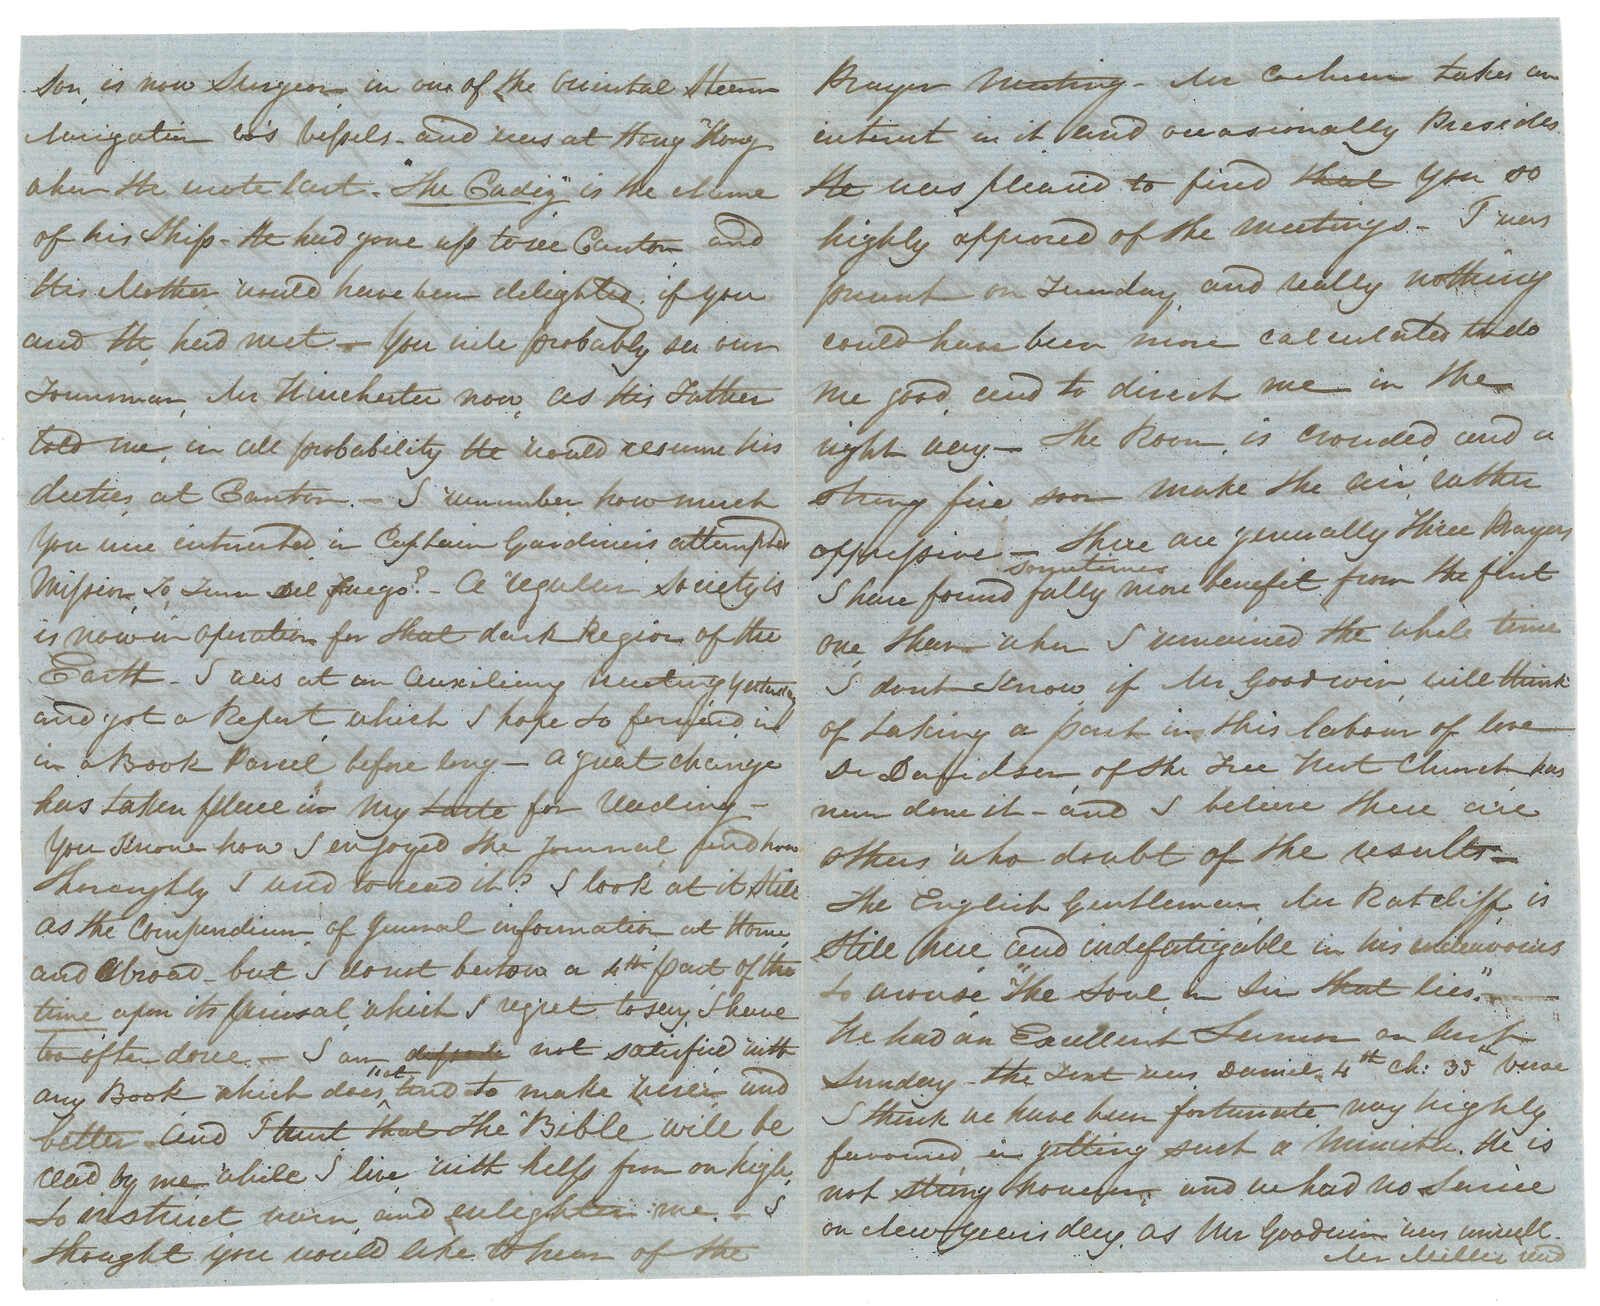 Son, is now Surgeon in one of the Oriental Steam
Navigation Co's Vessels - and was at Hong Kong
when he wrote last - "The Cadiz" is the Name
of his Ship - He had gone up to see Canton and
His Mother would have been delighted if you
and He had met - You will probably see our
Townsman, Mr Winchester now, as His Father
told me, in all probability He would resume his
duties at Canton. - I remember how much
You were interested in Captain Gardiner's attempted
Mission to Terra Del Fuego? - A regular Society is
is now in operation for that dark Region of the
Earth - I was at an Auxiliary meeting yesterday
and got a Report which I hope to forward in
in a Book Parcel before long - A great change
has taken place in My taste for Reading -
You know how I enjoyed the Journal and how
thoroughly I used to read it? I look at it still
as the Compendium of General information at Home
and Abroad - but I do not bestow a 4th part of the
time upon its perusal, which I regret to say I have
too often done - I am not satisfied with
any Book which does "not" tend to make wiser and
better - and I trust that The Bible will be
read by me while I live with help from on high,
to instruct warn and enlighten me. - I
thought you would like to hear of the
Prayer Meeting - Mr Cochran takes an
interest in it and occasionally Presides
He was pleased to find that You so
highly approved of the Meetings - I was
present on Tuesday and really nothing
could have been more calculated to do
me good and to direct me in the
right way - The Room is crowded and a
strong fire soon make the air rather
oppressive - There are generally Three Prayers
I have found sometimes fully more benefit from the first
one than when I remained the whole time
I dont know if Mr Goodwin will think
of taking a part in this labour of love
Dr Davidson of the Free West Church has
never done it - and I believe there are
others who doubt of the results -
The English Gentleman Mr Ratcliff is
still here and indefatigable in his endeavours
to arouse "the Soul in Sin that lies". -
We had an Excellent Sermon on last
Sunday - the Text was Daniel 4th Ch: 35th verse
I think we have been fortunate nay highly
favoured in getting such a Minister. He is
not strong however, and we had no Service
on New years day as Mr Goodwin was unwell.
Mr Miller and